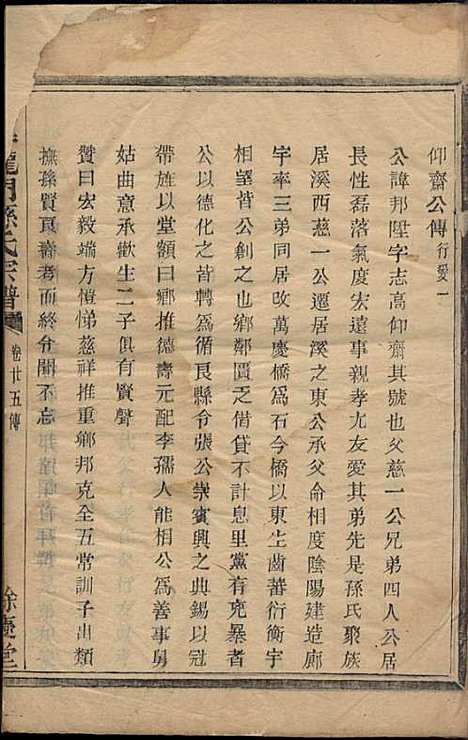 仰齋公傳 行愛一
公諱邦陞字志高仰齋其號也父慈一公兄弟四人公居
長性磊落氣度宏遠事親孝尤友愛其弟先是孫氏聚族
居溪西慈一公遷居溪之東公承父命相度陰陽建造廊
宇率三弟同居改萬慶橋爲石今橋以東生齒蕃衍衡宇
相望皆公創之也鄉鄰匱乏借貸不計息里黨有克暴者
公以德化之皆轉爲循良縣令張公崇賓興之典錫以冠
帶旌以堂額曰鄉推德壽元配李孺人能相公爲善事舅
姑曲意承歡生二子俱有賢聲
贊曰宏毅端方愷悌慈祥推重鄉邦克全五常訓子出類
撫孫賢良壽考而終令聞不忘
龍門孫氏宗譜
卷廿五傳
餘慶堂